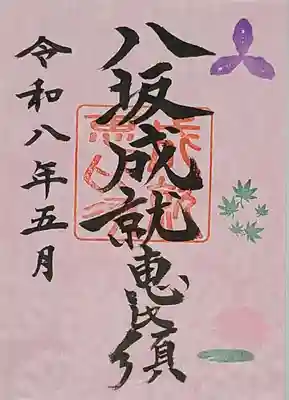 八坂成就恵比須
令和八年五月